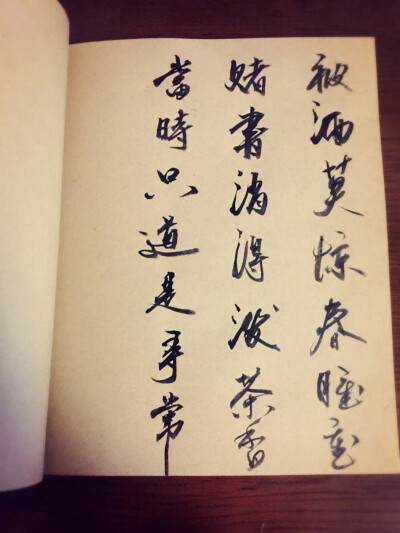 被酒莫惊春睡重
赌書消得泼茶香
當時只道是尋常